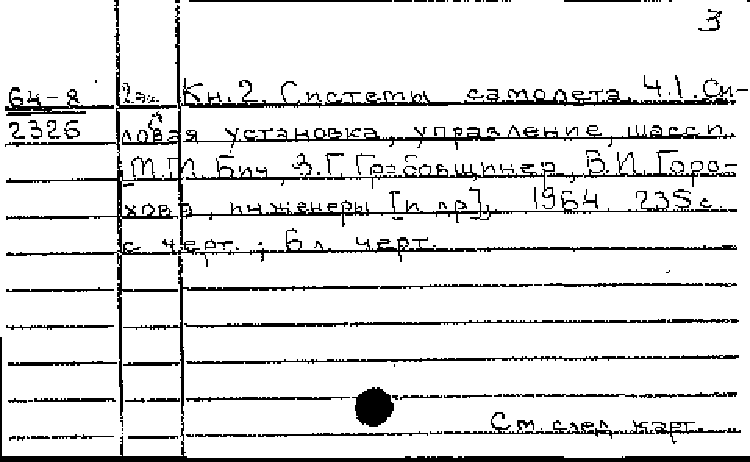 3
64-8 2 эк. Кн. 2. Системы самолета. Ч. 1. Си-
2326 ловая установка, управление, шасси.
М.М. Бич, З.Г. Гразбовщинер, В.И. Горо-
хова, инженеры [и др]. 1964 235 с.
с черт.; 6 л. черт.
См. след. карт.